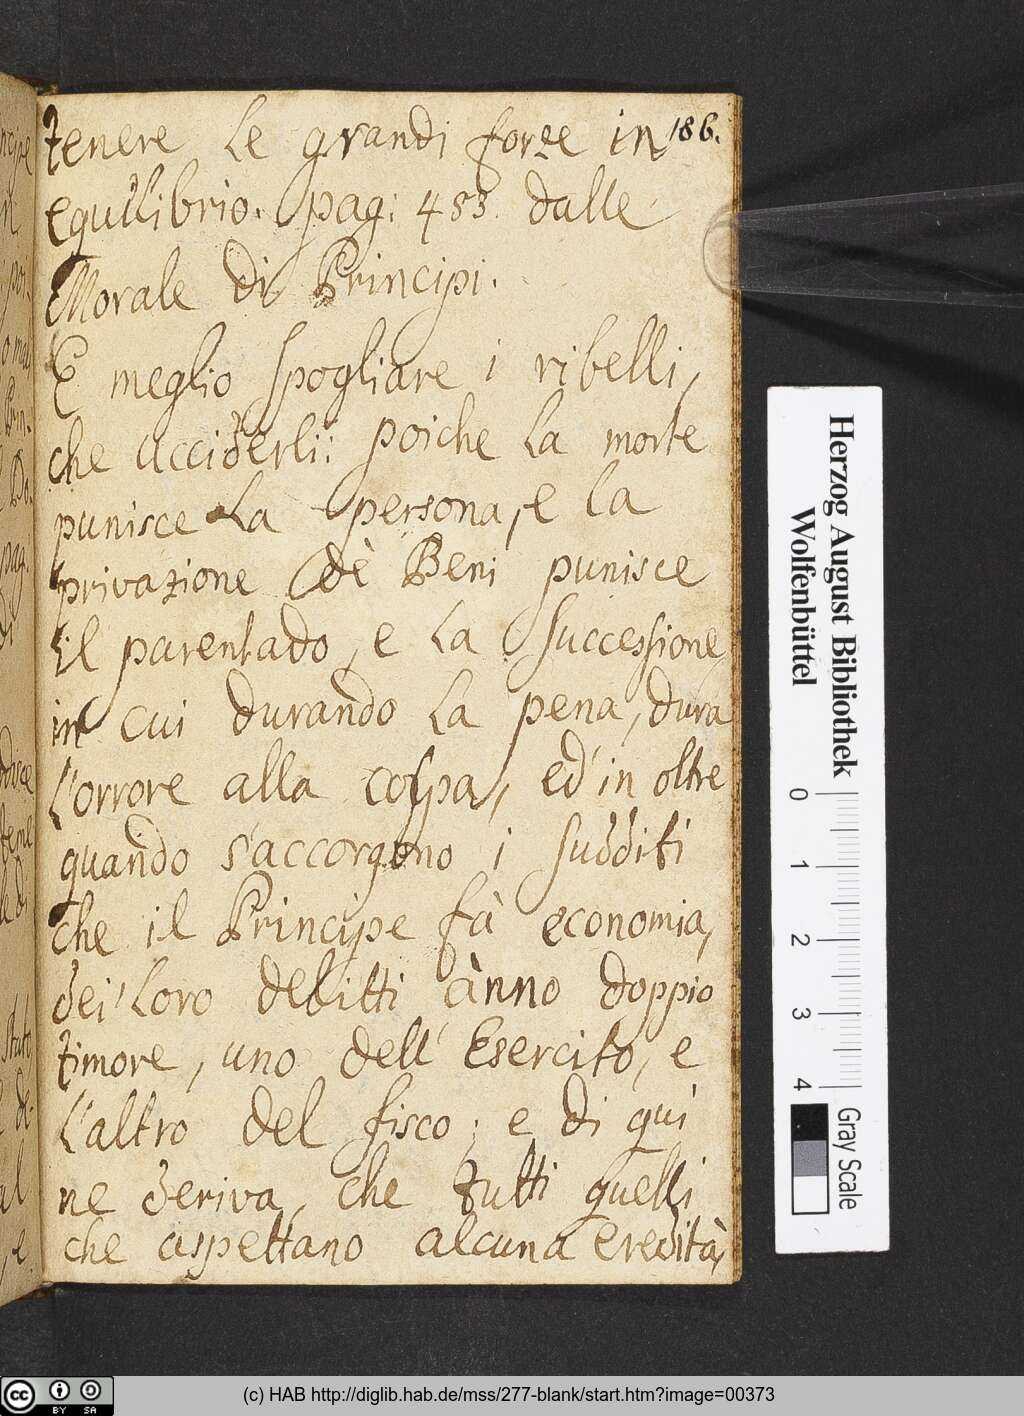 186.
tenere le grandi forze in
equilibrio. pag: 453 dalle
Morale di Principi.
E meglio spogliare i ribelli,
cheucciderli: poiche la morte
punisce la persona, e la
privazione dè Beni punisce
il parentado, e la successione,
in cui durando la pena, dura
l'orrore alla colpa, ed in oltre
quando s'accorgono i sudditi
che il Principe fà economia,
dei loro delitti ànno doppio
timore, uno dell' Esercito, e
l'altro del fisco; e di qui
ne deriva, che tutti quelli
che aspettano alcuna eredità,
Herzog August Bibliothek
Wolfenbüttel
0 1 2 3 4
Gray Scale
BY SA
(c) HAB http://diglib.hab.de/mss/277-blank/start.htm?image=00373